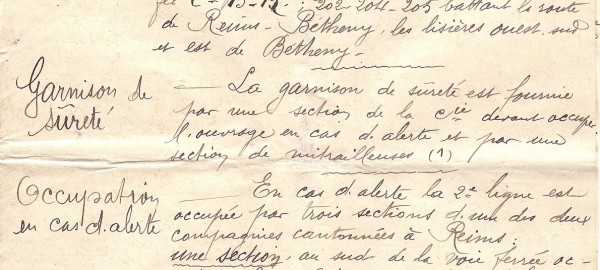 fée C-13-17 : 202-204-205 battant la route
de Reims-Bétheny, les lisières ouest, sud
et est de Bétheny-
Garnison de
sûreté
— La garnison de sûreté est fournie
par une section de la Cie devant occuper
l'ouvrage en cas d'alerte et par une
section de mitrailleuses (1)
Occupation
en cas d'alerte
— En cas d'alerte la 2e ligne est
occupée par trois sections d'une des deux
compagnies cantonnées à Reims :
une section, au sud de la voie ferrée oc-